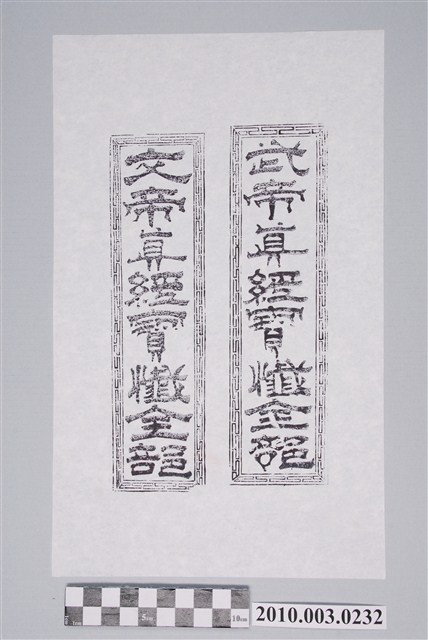 武帝真經寶懺全部
文帝真經寶懺全部
5cm
10cm
2010.003.0232